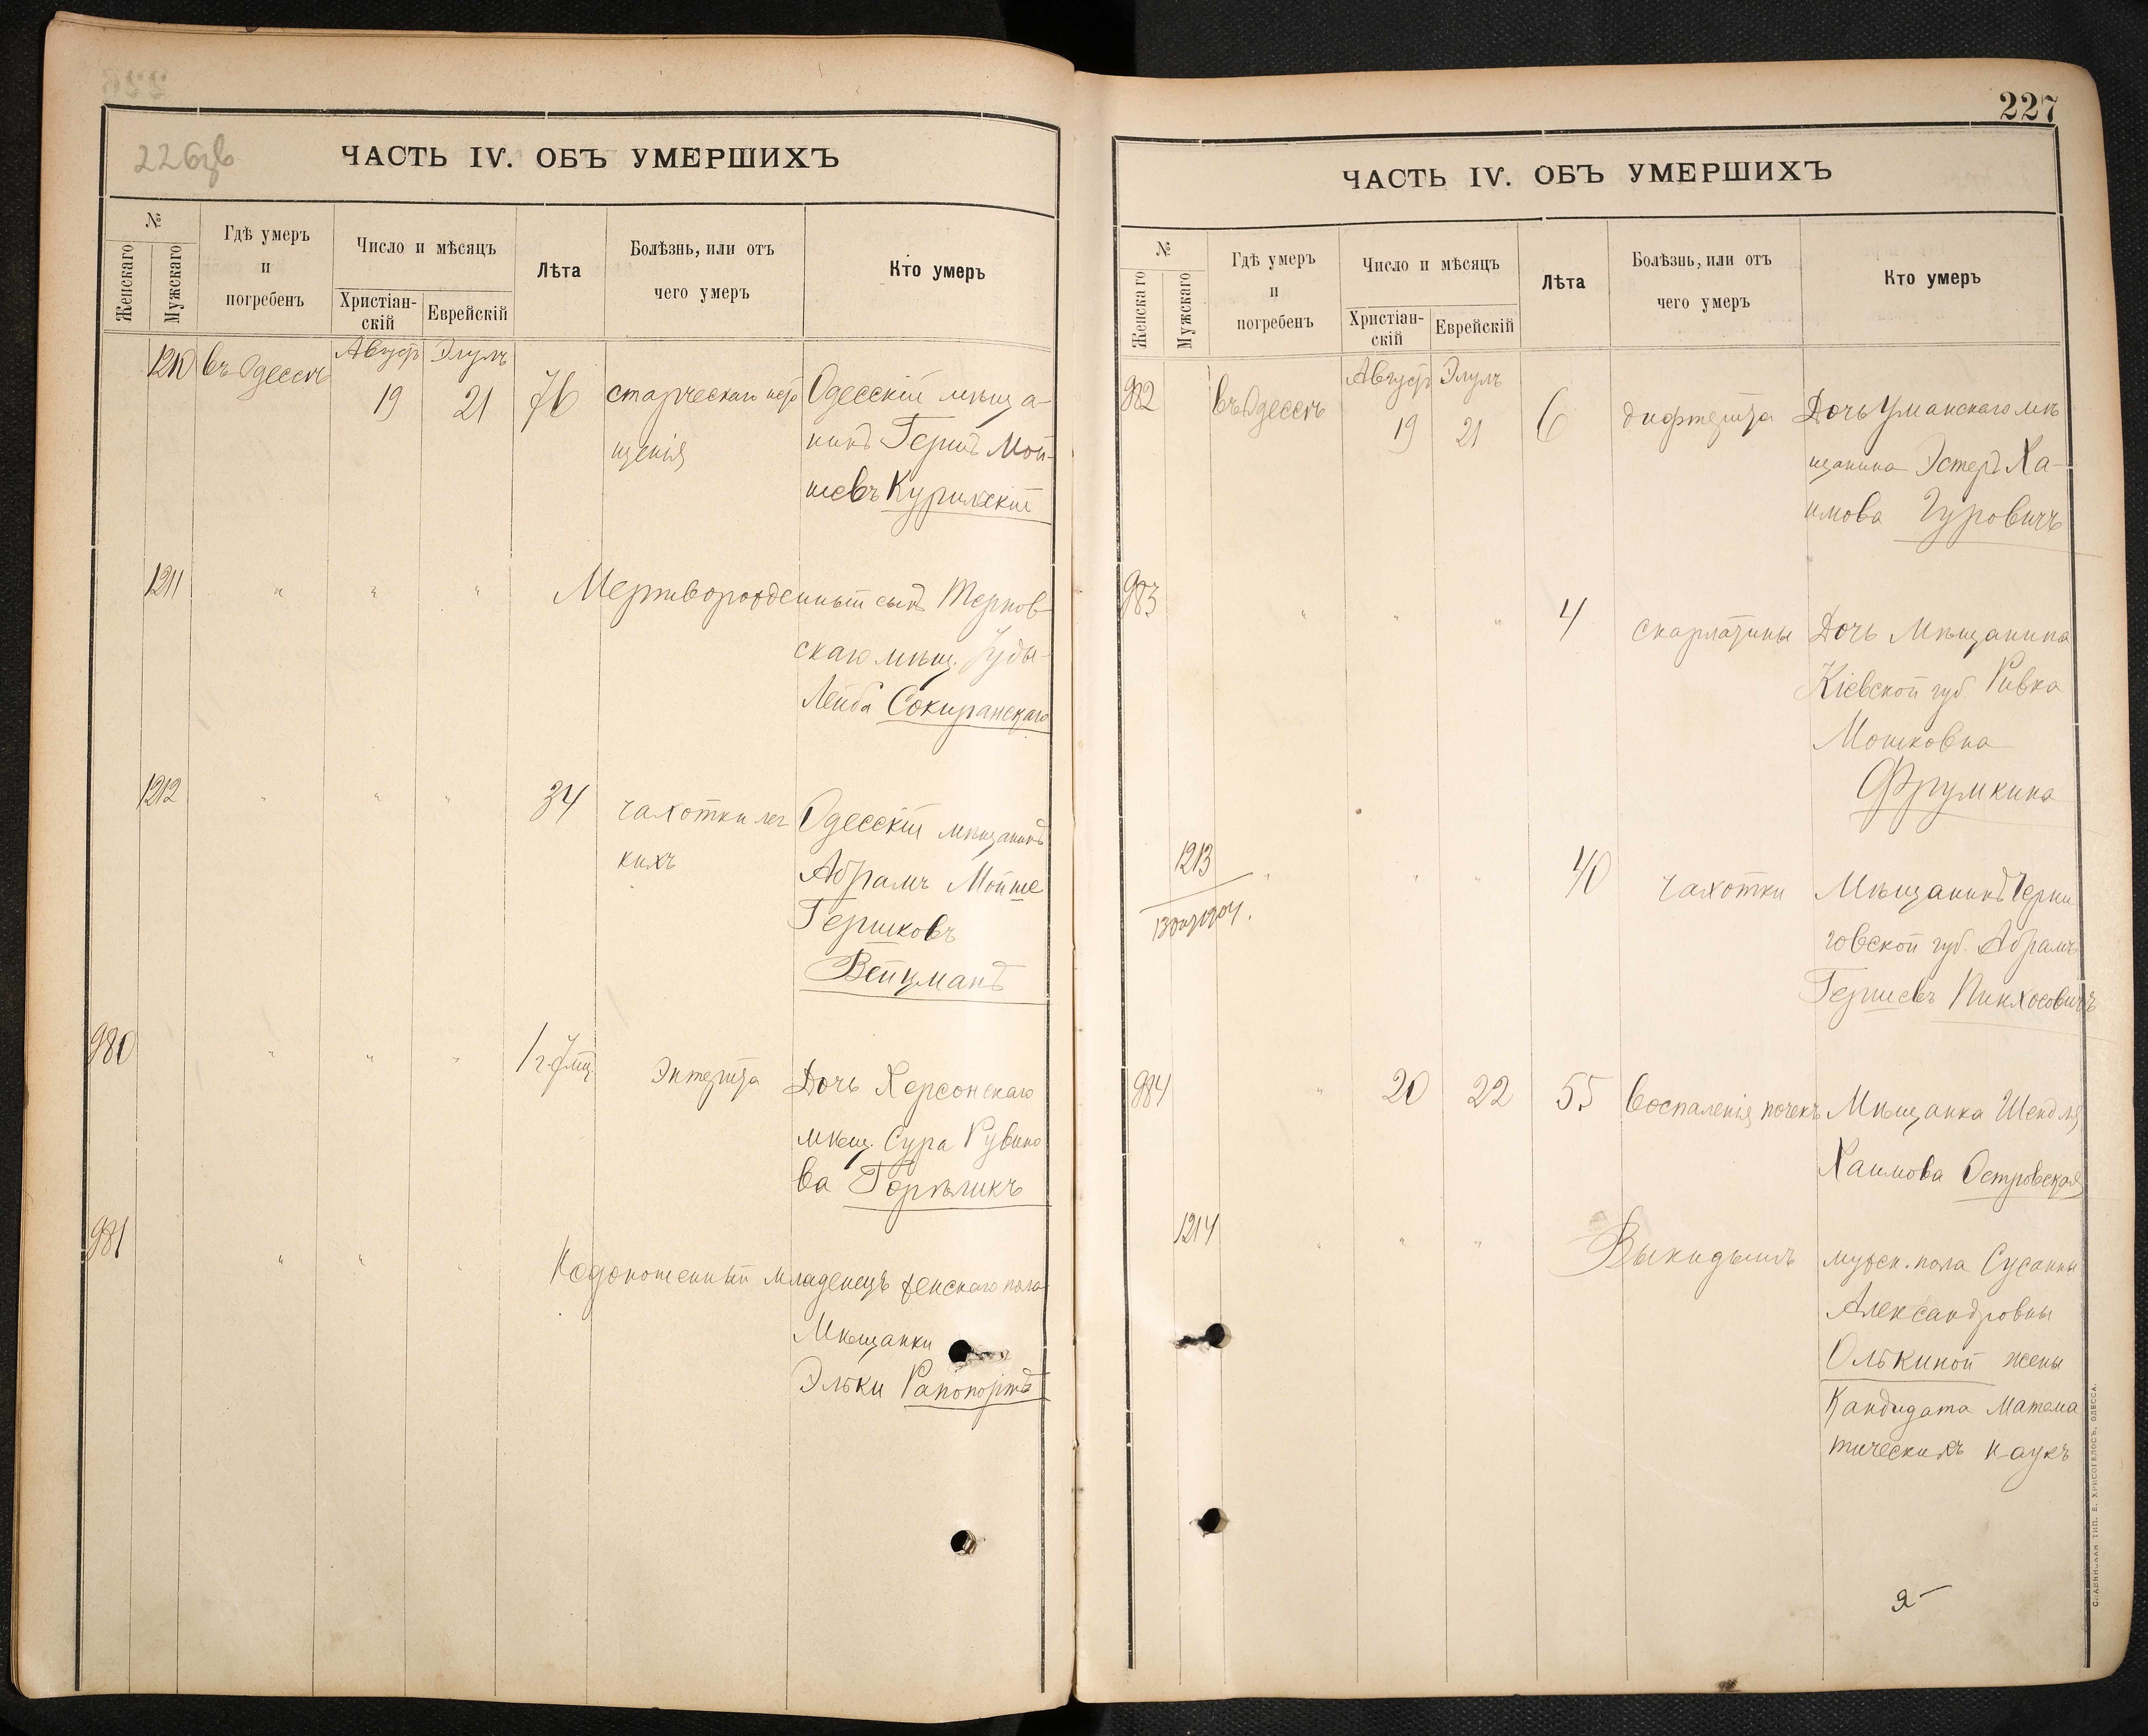 226об
ЧАСТЬ IV. ОБЪ УМЕРШИХЪ
№
Женскаго
Мужскаго
Гдѣ умеръ
и
погребенъ
Число и мѣсяцъ
Христіан-
скій
Еврейскій
Лѣта
Болѣзнь, или отъ
чего умеръ
Кто умеръ
1210 въ Одессѣ Август Элулъ
19 21 76 старческаго исто Одесскій мѣща-
щенія нинъ Гершъ Мой-
шевъ Курильскій
1211 " " " Мертворожденный сынъ Тернов-
скаго мѣщ. Іуды-
Лейба Сокиранскаго
1212 " " " 34 чахотки лег Одесскій мѣщанинъ
кихъ Абрамъ Мойше
Гершковъ
Вейцманъ
980 " " " 1 г. 7 мц. Энтерита Дочь Херсонскаго
мѣщ. Сура Рувино
ва Горѣликъ
981 " " " Недоношенный младенецъ женскаго пола
Мѣщанки
Эльки Рапопортъ
227
ЧАСТЬ IV. ОБЪ УМЕРШИХЪ
№
Женскаго
Мужскаго
Гдѣ умеръ
и
погребенъ
Число и мѣсяцъ
Христіан-
скій
Еврейскій
Лѣта
Болѣзнь, или отъ
чего умеръ
Кто умеръ
982 въ Одессѣ Август Элулъ
19 21 6 дифтерита Дочь Уманскаго мѣ
щанина Эстеръ Ха-
имова Гуровичъ
983 " " " 4 скарлатины Дочь Мѣщанина
Кіевской губ Ривка
Мошковна
Фрумкина
1213 " " " 40 чахотки Мѣщанинъ Черни
говской губ. Абрамъ
Гершевъ Пинхосовичъ
984 " 20 22 55 Воспаленія почекъ Мѣщанка Шендля
Хаимова Островская
1214 " " " Выкидышъ мужск. пола Сусанны
Александровны
Олькиной жены
Кандидата Матема
тическихъ наукъ
СЛАВЯНСКАЯ ТИП. Е. ХРИСОГЕЛОСЪ, ОДЕССА.